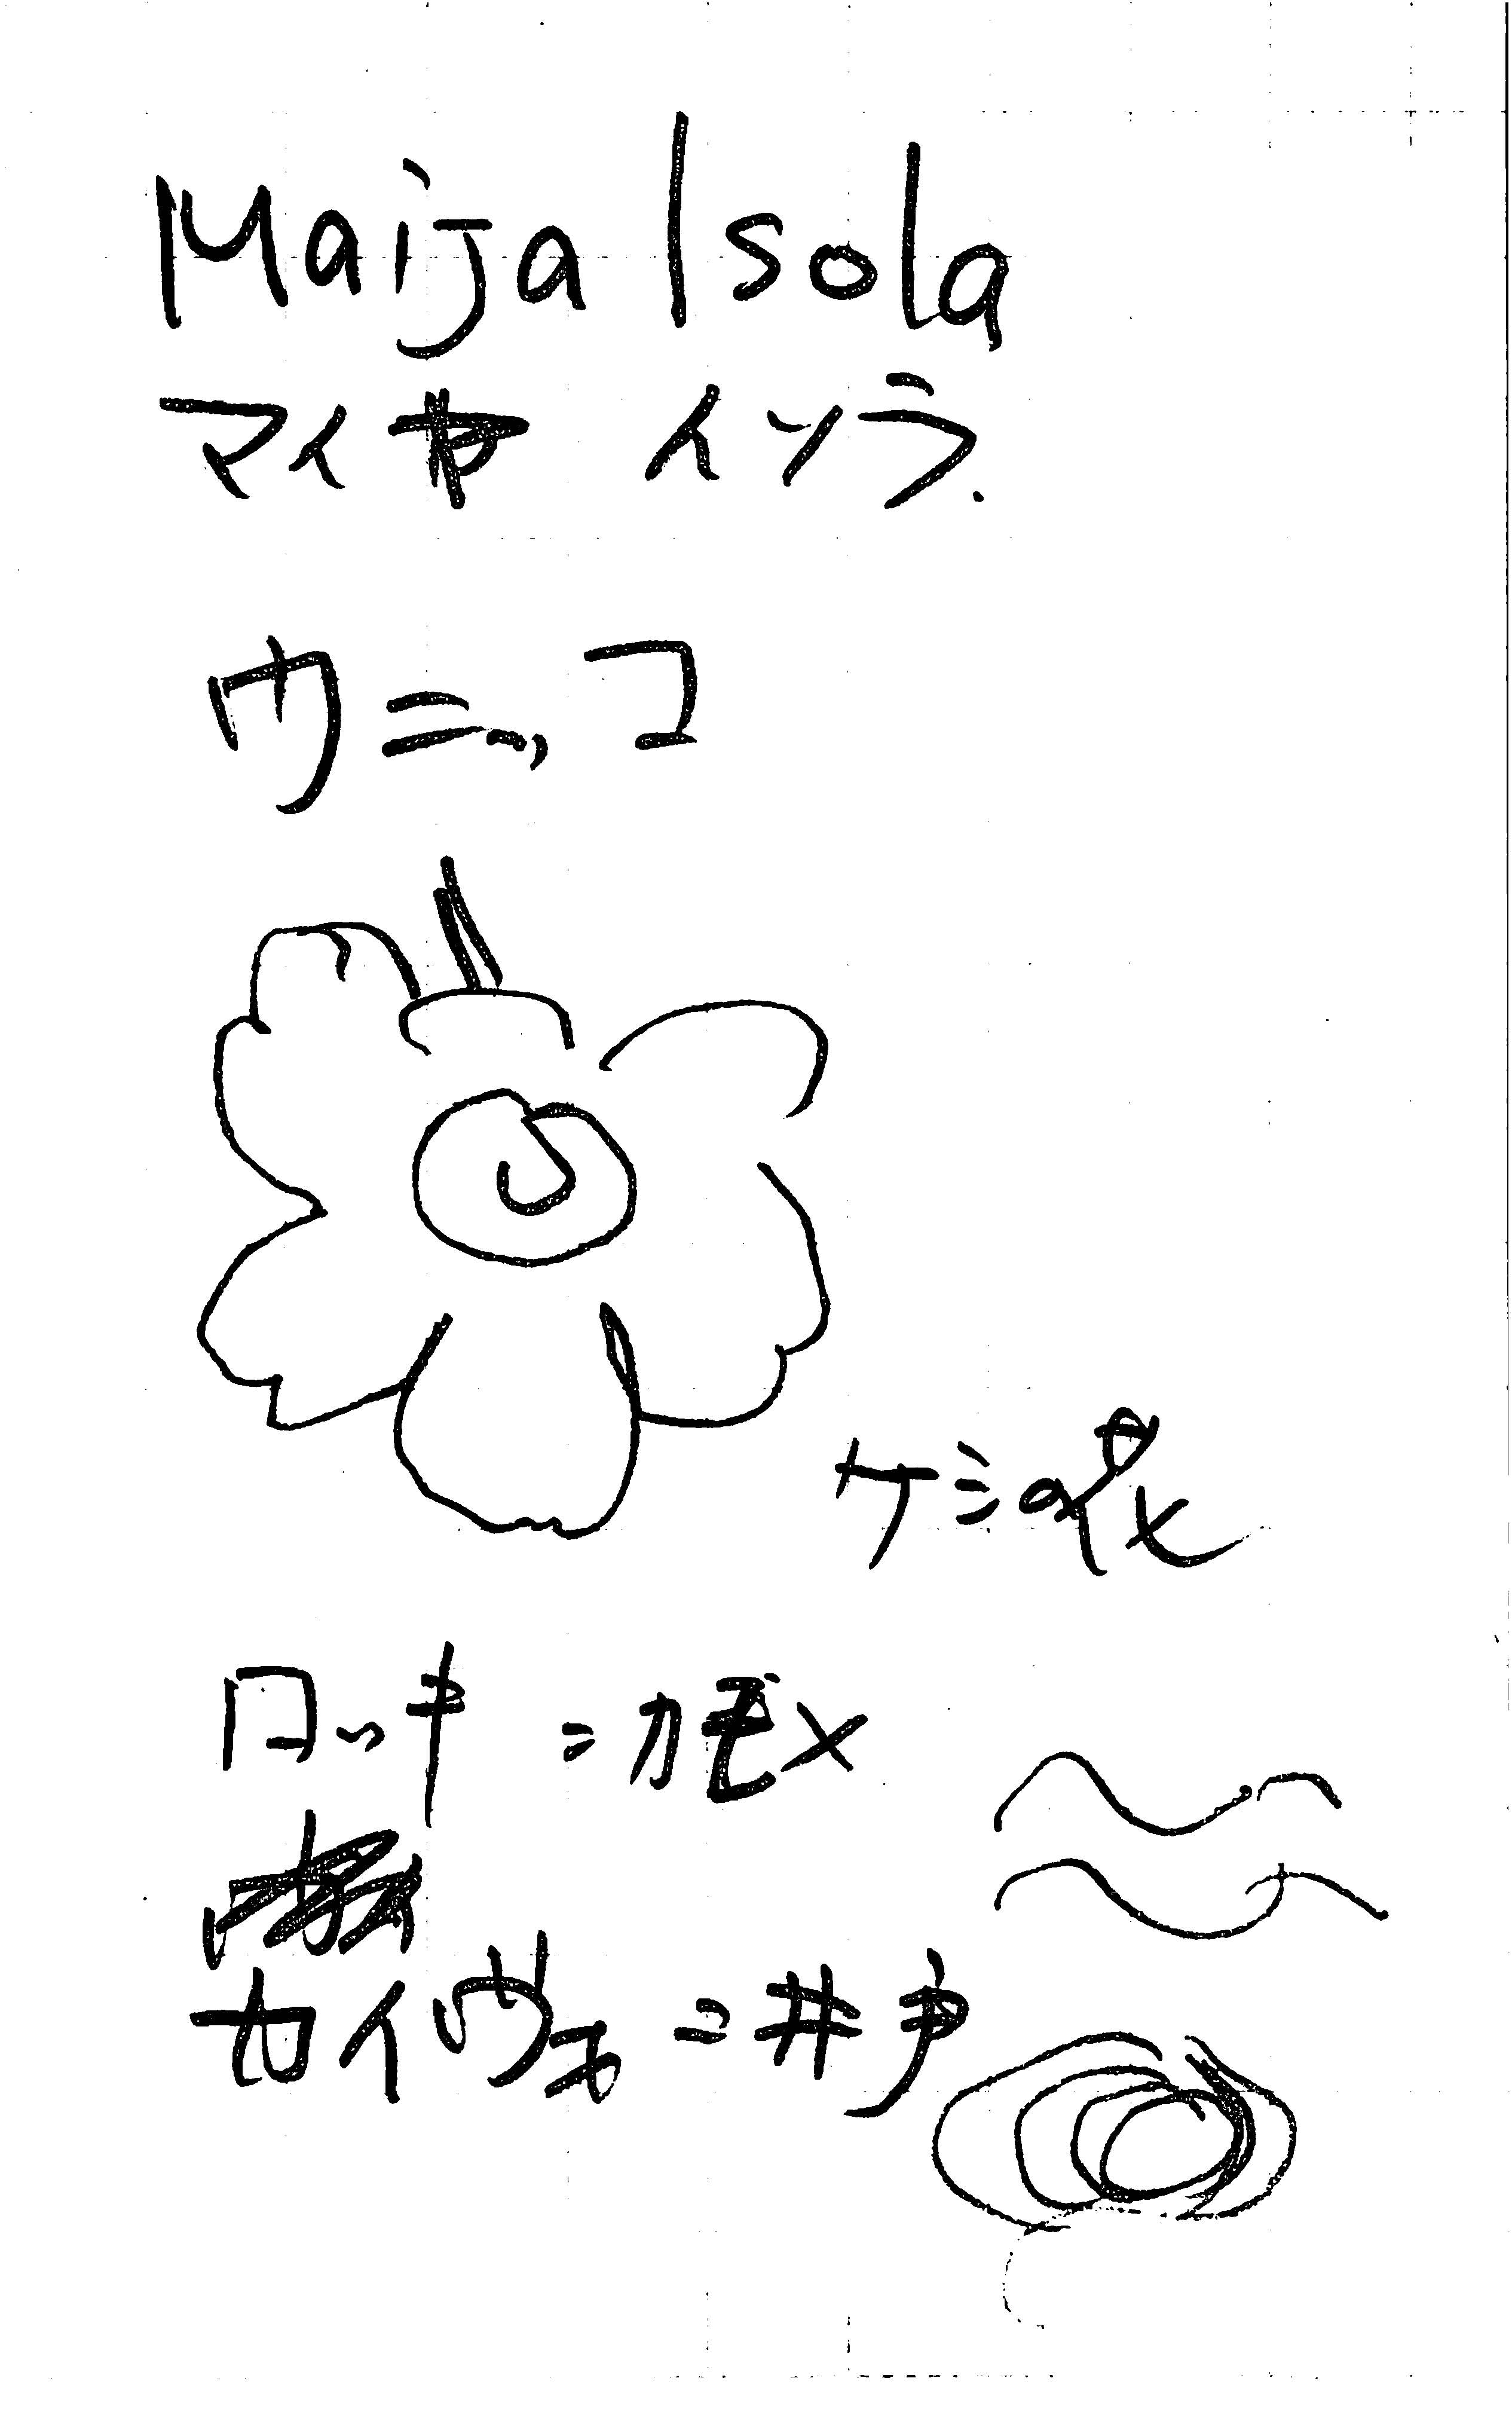 Maija Isola
マイヤ イソラ.
ウニッコ
ロッキ = カモメ
カイヴォ = 井戸